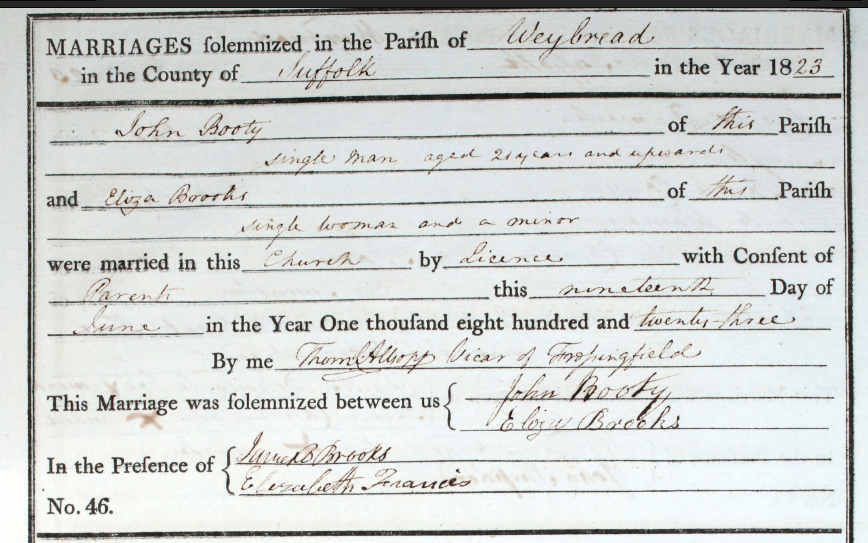 MARRIAGES ſolemnized in the Pariſh of Weybread
in the County of Suffolk in the Year 1823
John Booty of this Pariſh
single man aged 21 years and upwards
and Eliza Brooks of this Pariſh
single woman and a minor
were married in this Church by Licence with Conſent of
Parents this nineteenth Day of
June in the Year One thouſand eight hundred and twenty three
By me Thom Allsopp Vicar of Fressingfield
This Marriage was ſolemnized between us { John Booty
Eliza Brooks
In the Preſence of { James B Brooks
Elizabeth Francis
No. 46.